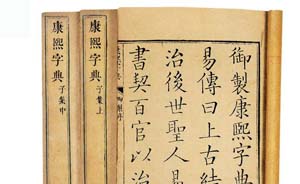 御製康熙字典
易傳曰上古結
治後世聖人易
書契百官以治
康熙字典
子集上
康熙字典
子集中